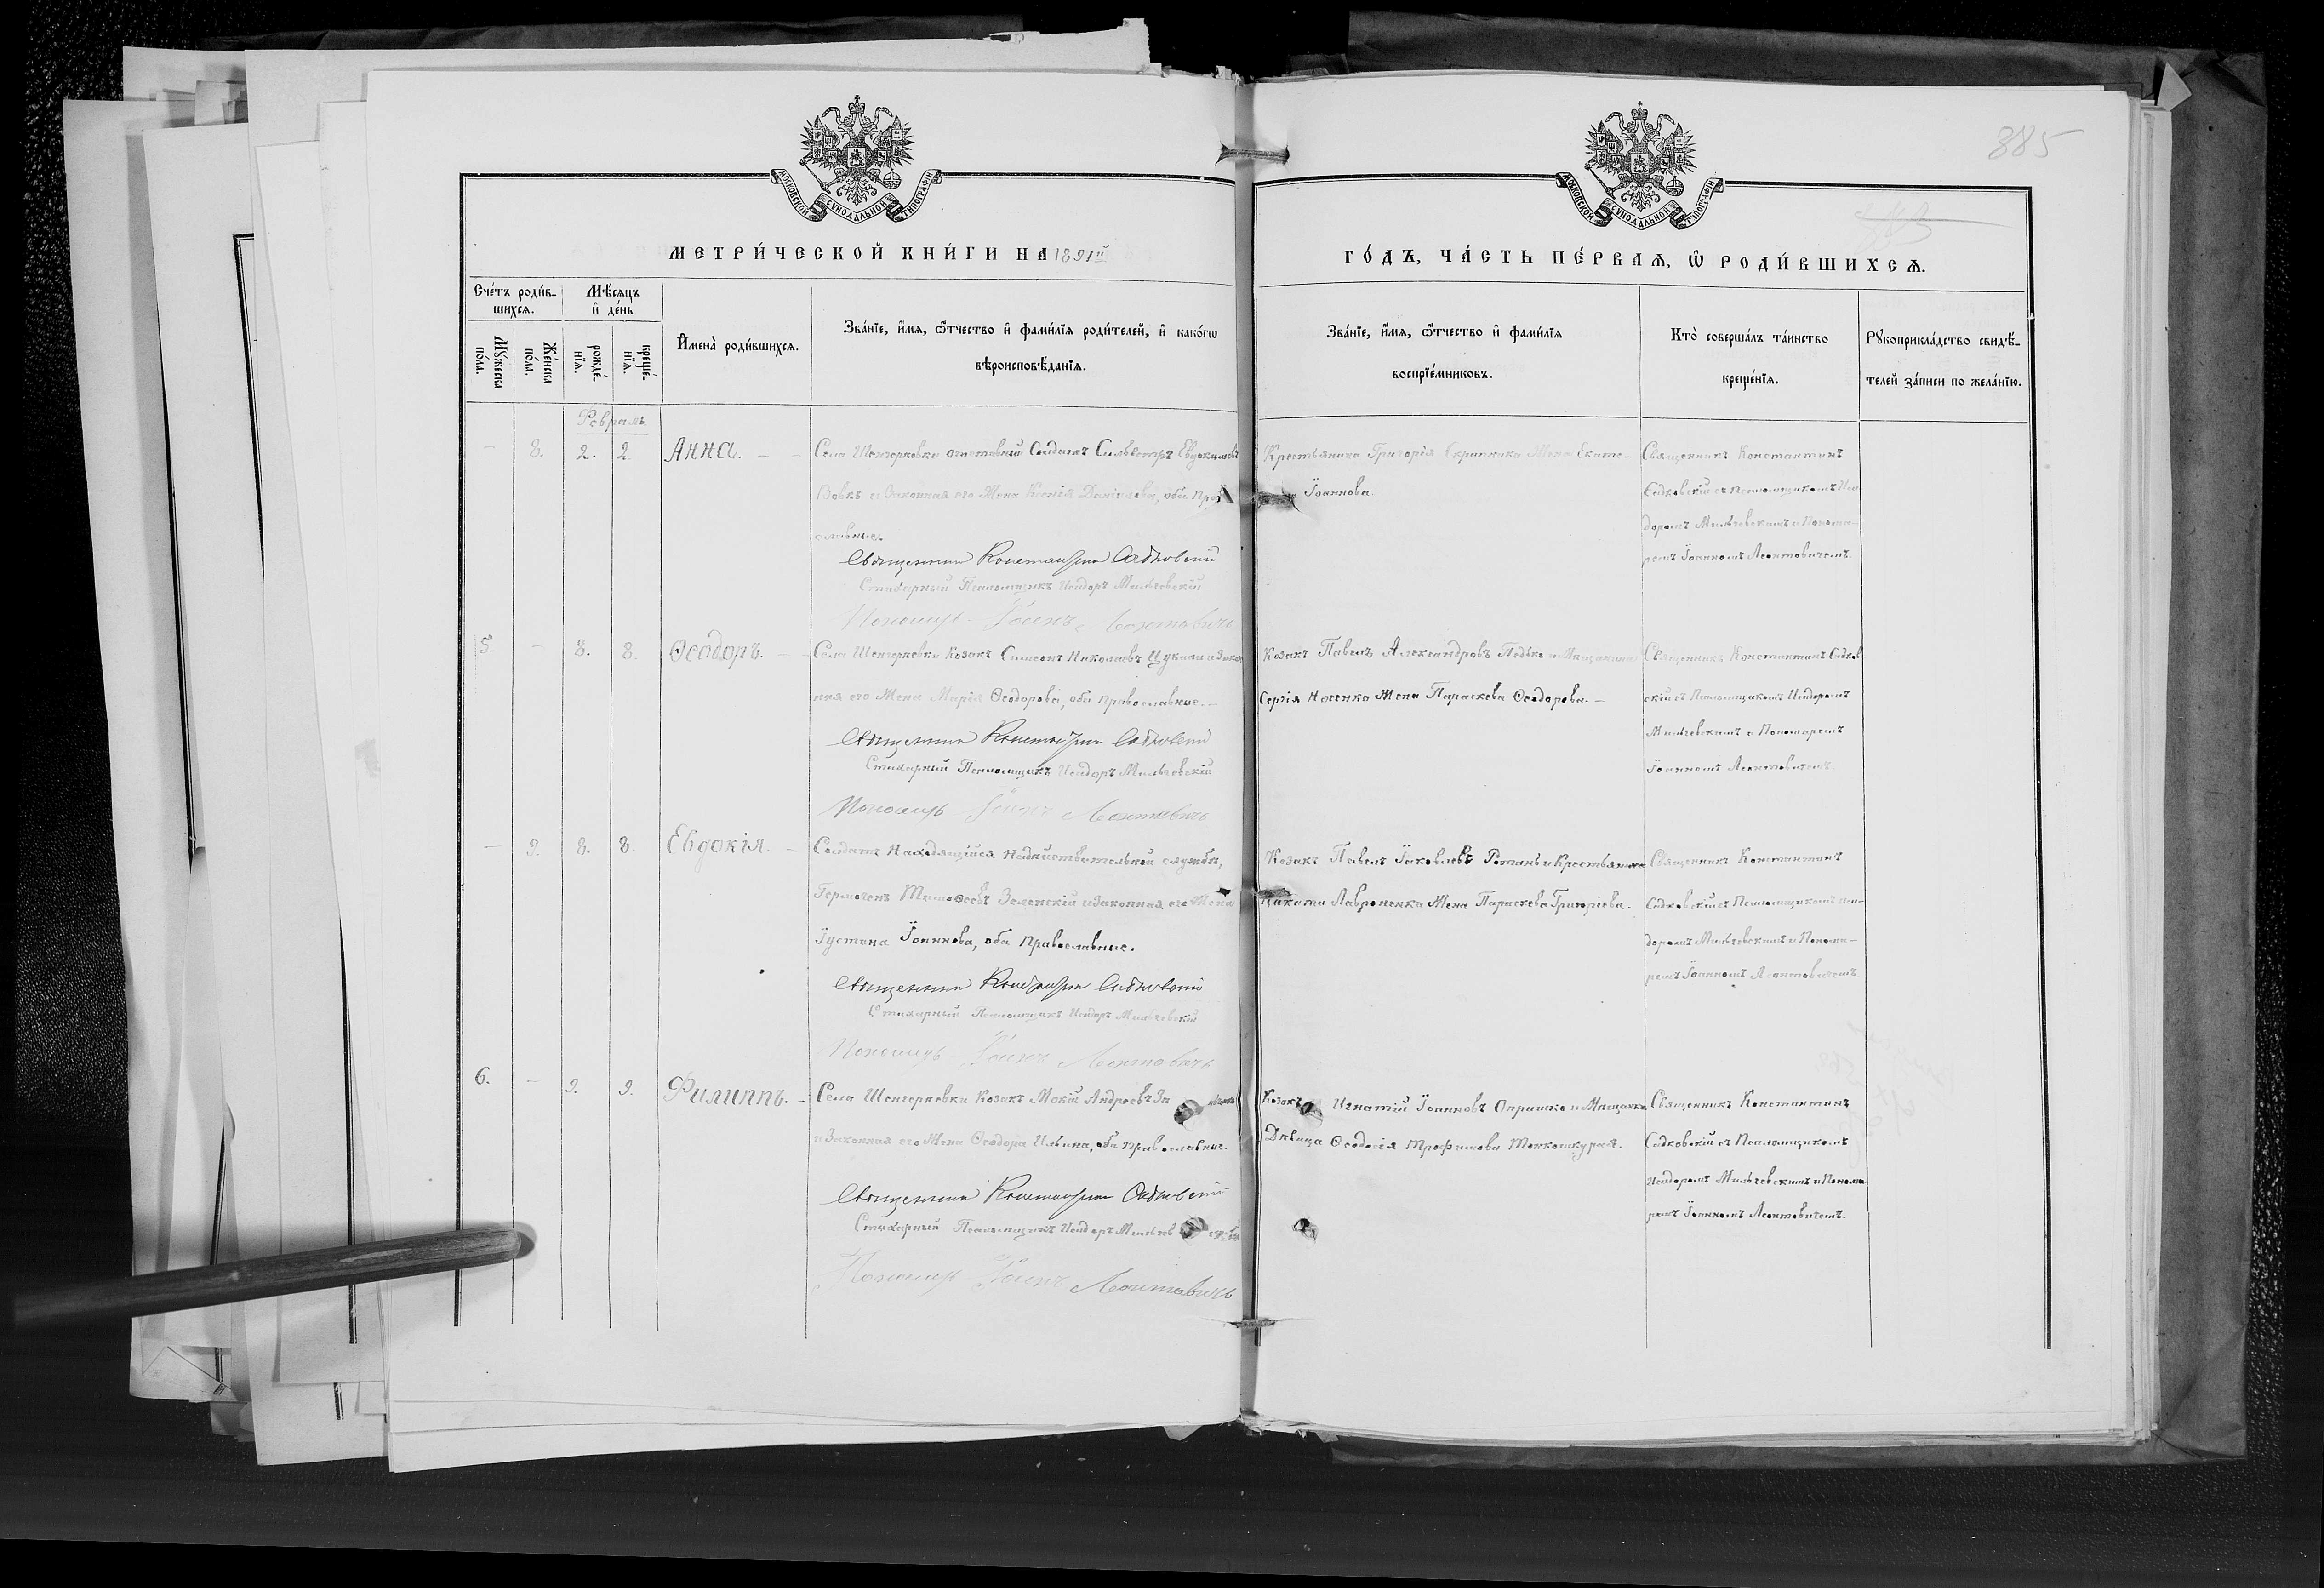 885
МОСКОВСКОЙ СУНОДАЛЬНОЙ ТИПОГРАФІИ
МОСКОВСКОЙ СУНОДАЛЬНОЙ ТИПОГРАФІИ
МЕТРИ́ЧЕСКОЙ КНИ́ГИ НА 1891й
ГО́ДЪ, ЧА́СТЬ ПЕ́РВАѦ, Ѡ РОДИ́ВШИХСѦ.
Сче́тъ роди́в-
шихсѧ.
Мѣ́сѧцъ
и де́нь
Мꙋ́жеска
по́ла.
Же́нска
по́ла.
рожде́-
нїѧ.
креще́-
нїѧ.
И҆мена̀ роди́вшихсѧ.
Зва́нїе, и҆́мѧ, ѻ҆́тчество и҆ фами́лїѧ роди́телей, и҆ како́гѡ
вѣроисповѣ́данїѧ.
Зва́нїе, и҆́мѧ, ѻ҆́тчество и҆ фами́лїѧ
воспрїе́мниковъ.
Кто̀ соверша́лъ та́инство
креще́нїѧ.
Рꙋкоприкла́дство свидѣ́-
телей за́писи по жела́нїю.
Февраль
- 8. 2. 2. Анна. - -
Села Шенгерѣевки отставный Солдатъ Сильвестръ Евдокимовъ
Вовкъ и Законная его Жена Ксенія Даніилова, оба Пра
славные.
Священникъ Константинъ Садковскій
Стихарный Псаломщикъ Исидоръ Мильчевскій
Пономарь Іоаннъ Леонтовичъ
Крестьянина Григорія Скрипника Жена Екате-
Іоаннова.
Священникъ Константинъ
Садковскій съ Псаломщикомъ Иси
доромъ Мильчевскимъ и Понома-
ремъ Іоанномъ Леонтовичемъ.
5. - 8. 8. Ѳеодоръ. -
Села Шенгерѣевки Козакъ Симеонъ Николаевъ Цукани и Закон
ная его Жена Марія Ѳеодорова, оба православные.-
Священникъ Константинъ Садковскій
Стихарный Псаломщикъ Исидоръ Мильчевскій
Пономарь Іоаннъ Леонтовичъ
Козакъ Павелъ Александровъ и Мещанина
Сергія Носенка Жена Параскева Ѳеодорова.-
Священникъ Константинъ Садков
скій съ Псаломщикомъ Исидоромъ
Мильчевскимъ и Пономаремъ
Іоанномъ Леонтовичемъ.
- 9. 8. 8. Евдокія. -
Солдатъ Находящійся На дѣйствительной службѣ,
Гермогенъ Тимоѳеевъ Зеленскій и Законная его Жена
Іустина Іоаннова, оба Православные.
Священникъ Константинъ Садковскій
Стихарный Псаломщикъ Исидоръ Мильчевскій
Пономарь Іоаннъ Леонтовичъ
Козакъ Павелъ Іаковлевъ и Крестьянина
Никиты Лавроненка Жена Параскева Григоріева.
Священникъ Константинъ
Садковскій съ Псаломщикомъ Иси-
доромъ Мильчевскимъ и Понома-
ремъ Іоанномъ Леонтовичемъ
6. - 9. 9. Филиппъ. -
Села Шенгерѣевки Козакъ Мокій Андреевъ
и Законная его Жена Ѳеодора Ильина, оба православные.
Священникъ Константинъ Садковскій
Стихарный Псаломщикъ Исидоръ Мильчев
Пономарь Іоаннъ Леонтовичъ
Козакъ Игнатій Іоанновъ Опрашко и Мещанка
Дѣвица Ѳеодосія Трофимова Тонкошкурая.
Священникъ Константинъ
Садковскій съ Псаломщикомъ
Исидоромъ Мильчевскимъ и Понома
ремъ Іоанномъ Леонтовичемъ.